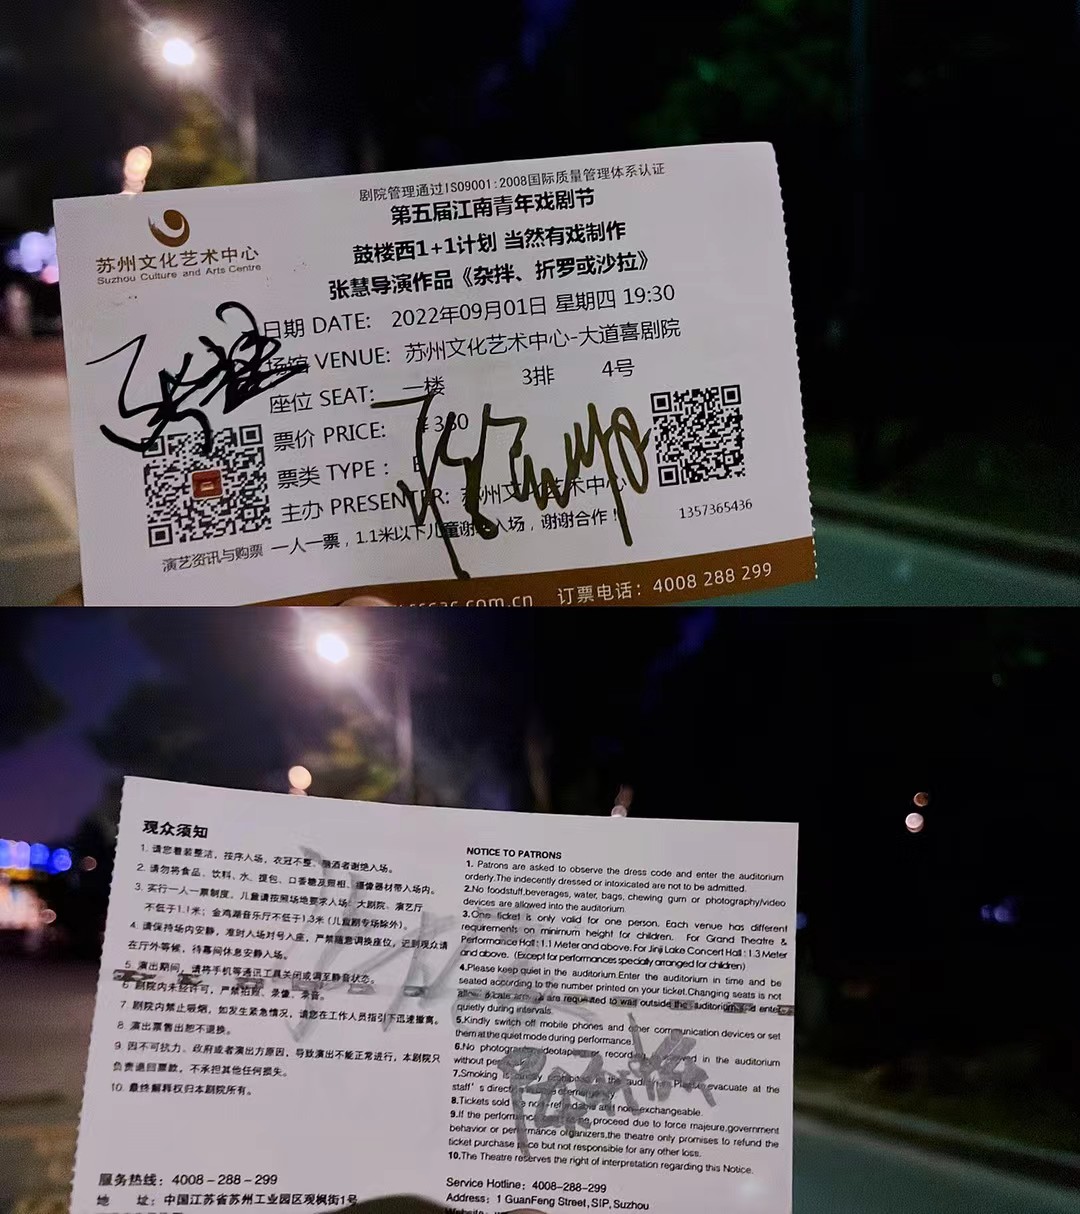 剧院管理通过ISO9001:2008国际质量管理体系认证
第五届江南青年戏剧节
鼓楼西1+1计划 当然有戏制作
张慧导演作品《杂拌、折罗或沙拉》
苏州文化艺术中心
Suzhou Culture and Arts Centre
日期 DATE: 2022年09月01日 星期四 19:30
场馆 VENUE: 苏州文化艺术中心-大道喜剧院
座位 SEAT: 一楼 3排 4号
票价 PRICE: ¥380
票类 TYPE：
主办 PRESENTER: 苏州文化艺术中心
一人一票，1.1米以下儿童谢绝入场，谢谢合作！
演艺资讯与购票
1357365436
.com.cn 订票电话：4008 288 299
观众须知
1. 请您着装整洁，按序入场，衣冠不整、酗酒者谢绝入场。
2. 请勿将食品、饮料、水、提包、口香糖及照相、摄像器材带入场内。
3. 实行一人一票制度，儿童请按照场地要求入场：大剧院、演艺厅
不低于1.1米；金鸡湖音乐厅不低于1.3米（儿童剧专场除外）。
4. 请保持场内安静，准时入场对号入座，严禁随意调换座位，迟到观众请
在厅外等候，待幕间休息安静入场。
5. 演出期间，请将手机等通讯工具关闭或调至静音状态。
6. 剧院内未经许可，严禁拍照、录像、录音。
7. 剧院内禁止吸烟，如发生紧急情况，请您在工作人员指引下迅速撤离。
8. 演出票售出恕不退换。
9. 因不可抗力、政府或者演出方原因，导致演出不能正常进行，本剧院只
负责退回票款，不承担其他任何损失。
10. 最终解释权归本剧院所有。
服务热线：4008-288-299
地 址：中国江苏省苏州工业园区观枫街1号
NOTICE TO PATRONS
1. Patrons are asked to observe the dress code and enter the auditorium
orderly.The indecently dressed or intoxicated are not to be admitted.
2.No foodstuff,beverages, water, bags, chewing gum or photography/video
devices are allowed into the auditorium
3.One ticket is only valid for one person. Each venue has different
requirements on minimum height for children. For Grand Theatre &
Performance Hall : 1.1 Meter and above. For Jinji Lake Concert Hall : 1.3 Meter
and above. (Except for performances specially arranged for children)
4.Please keep quiet in the auditorium.Enter the auditorium in time and be
seated according to the number printed on your ticket.Changing seats is not
are requested to wait outside the auditorium and enter
quietly during intervals.
5.Kindly switch off mobile phones and other communication devices or set
them at the quiet mode during performance.
6.No photography, videotaping or recording is allowed in the auditorium
without
7.Smoking is strictly prohibited in the auditorium. Please evacuate at the
staff's of emergency
8.Tickets sold are non-refundable and non-exchangeable.
9.If the performance proceed due to force majeure,government
behavior or performance organizers,the theatre only promises to refund the
ticket purchase price but not responsible for any other loss.
10.The Theatre reserves the right of interpretation regarding this Notice.
Service Hotline: 4008-288-299
Address: 1 GuanFeng Street, SIP, Suzhou